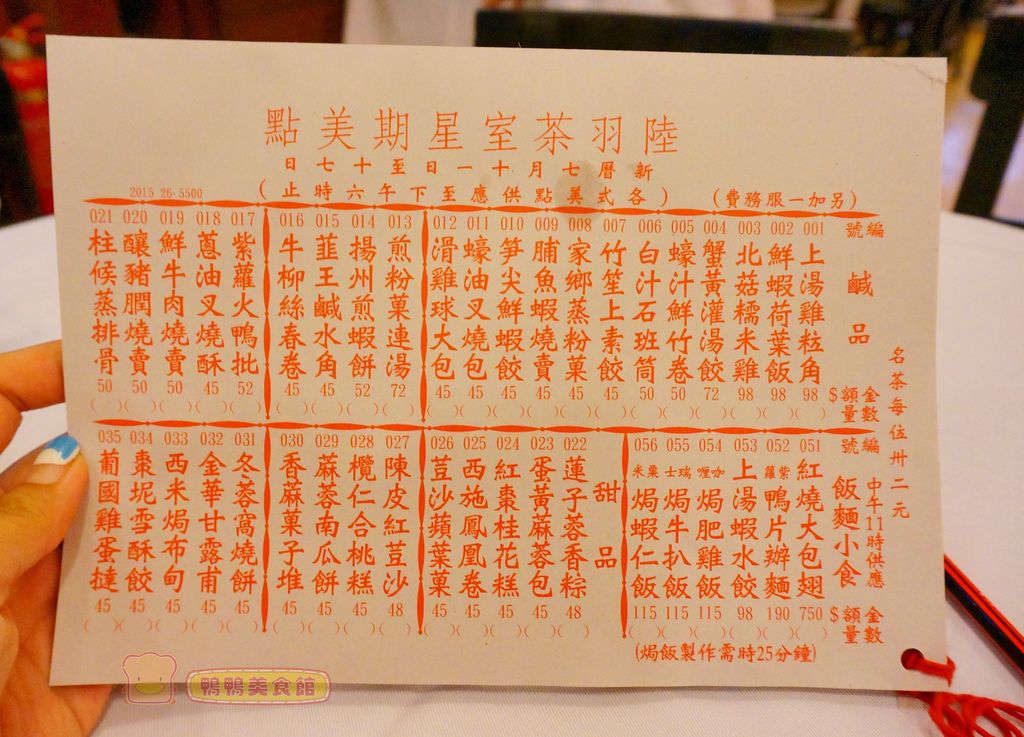 陸羽茶室星期美點
新曆七月十一日至十七日
(各式美點供應至下午六時止)
(另加一服務費)
2015 26-5500
編號
鹹品
金額$
數量
001 上湯雞粒角 98 ( )
002 鮮蝦荷葉飯 98 ( )
003 北菇糯米雞 98 ( )
004 蟹黃灌湯餃 72 ( )
005 蠔汁鮮竹卷 50 ( )
006 白汁石班筒 50 ( )
007 竹笙上素餃 45 ( )
008 家鄉蒸粉菓 45 ( )
009 脯魚蝦燒賣 45 ( )
010 笋尖鮮蝦餃 45 ( )
011 蠔油叉燒包 45 ( )
012 滑雞球大包 45 ( )
013 煎粉菓連湯 72 ( )
014 揚州煎蝦餅 52 ( )
015 韮王鹹水角 45 ( )
016 牛柳絲春卷 45 ( )
017 紫蘿火鴨批 52 ( )
018 蔥油叉燒酥 45 ( )
019 鮮牛肉燒賣 50 ( )
020 釀豬膶燒賣 50 ( )
021 柱候蒸排骨 50 ( )
名茶每位卅二元
中午11時供應
編號
飯麵小食
金額$
數量
051 紅燒大包翅 750 ( )
052 紫蘿鴨片辦麵 190 ( )
053 上湯蝦水餃 98 ( )
054 咖喱焗肥雞飯 115 ( )
055 瑞士焗牛扒飯 115 ( )
056 粟米焗蝦仁飯 115 ( )
(焗飯製作需時25分鐘)
甜品
022 蓮子蓉香粽 48 ( )
023 蛋黃蔴蓉包 45 ( )
024 紅棗桂花糕 45 ( )
025 西施鳳凰卷 45 ( )
026 荳沙蘋葉菓 45 ( )
027 陳皮紅荳沙 48 ( )
028 欖仁合桃糕 45 ( )
029 蔴蓉南瓜餅 45 ( )
030 香蔴菓子堆 45 ( )
031 冬蓉窩燒餅 45 ( )
032 金華甘露甫 45 ( )
033 西米焗布甸 45 ( )
034 棗坭雪酥餃 45 ( )
035 葡國雞蛋撻 45 ( )
鴨鴨美食館